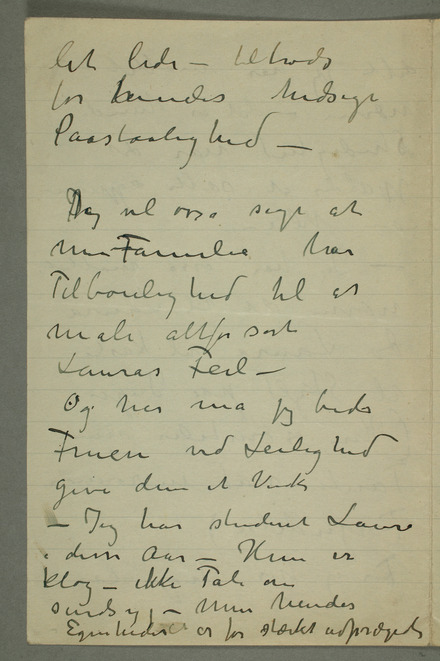 lit lide – tiltrods
for hendes hidsige
Paastaalighed –
Jeg vil ogsa sige at
min Familie har
Tilboielighed til at
male altfor sort
Lauras Feil –
Og her ma jeg bede
Fruen ved Leilighed
give dem et Vink
– Jeg har studeret Laura
i disse Aar – Hun er
klog – ikke Tale om
sindsyg, – men hendes
Egenheder er for stærkt udprægede